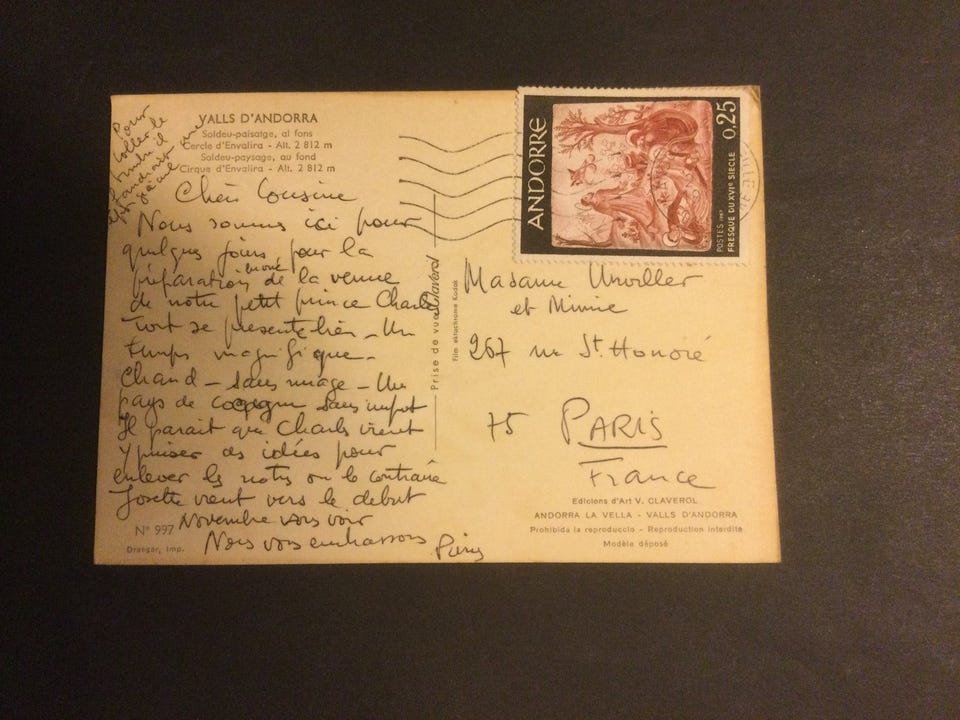 VALLS D'ANDORRA
Soldeu-paisatge, al fons
Cercle d'Envalira - Alt. 2 812 m
Soldeu-paysage, au fond
Cirque d'Envalira - Alt. 2 812 m
Pour
coller le
timbre il
faudrait une
Chère Cousine
Nous sommes ici pour
quelques jours pour la
préparation de la venue
de notre petit prince Charles
Tout se présente bien - Un
temps magnifique -
Chaud - sans nuage - Un
pays de cocagne sans impot
Il parait que Charles vient
y puiser des idées pour
enlever les notres ou le contraire
Josette vient vers le debut
Novembre vous voir
Nous vous embrassons
Nº 997
Draeger, Imp.
Prise de vue Claverol
Film ektachrome Kodak
ANDORRE
0,25
POSTES 1967
FRESQUE DU XVIe SIECLE
Madame
et Mimie
267 rue St. Honoré
75 PARIS
France
Edicions d'Art V. CLAVEROL
ANDORRA LA VELLA - VALLS D'ANDORRA
Prohibida la reproduccio - Reproduction interdite
Modèle déposé